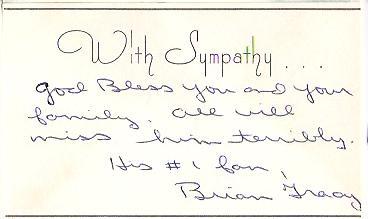 With Sympathy . . .
God Bless you and your
family. All will
miss him terribly.
His #1 fan,
Brian Gracy